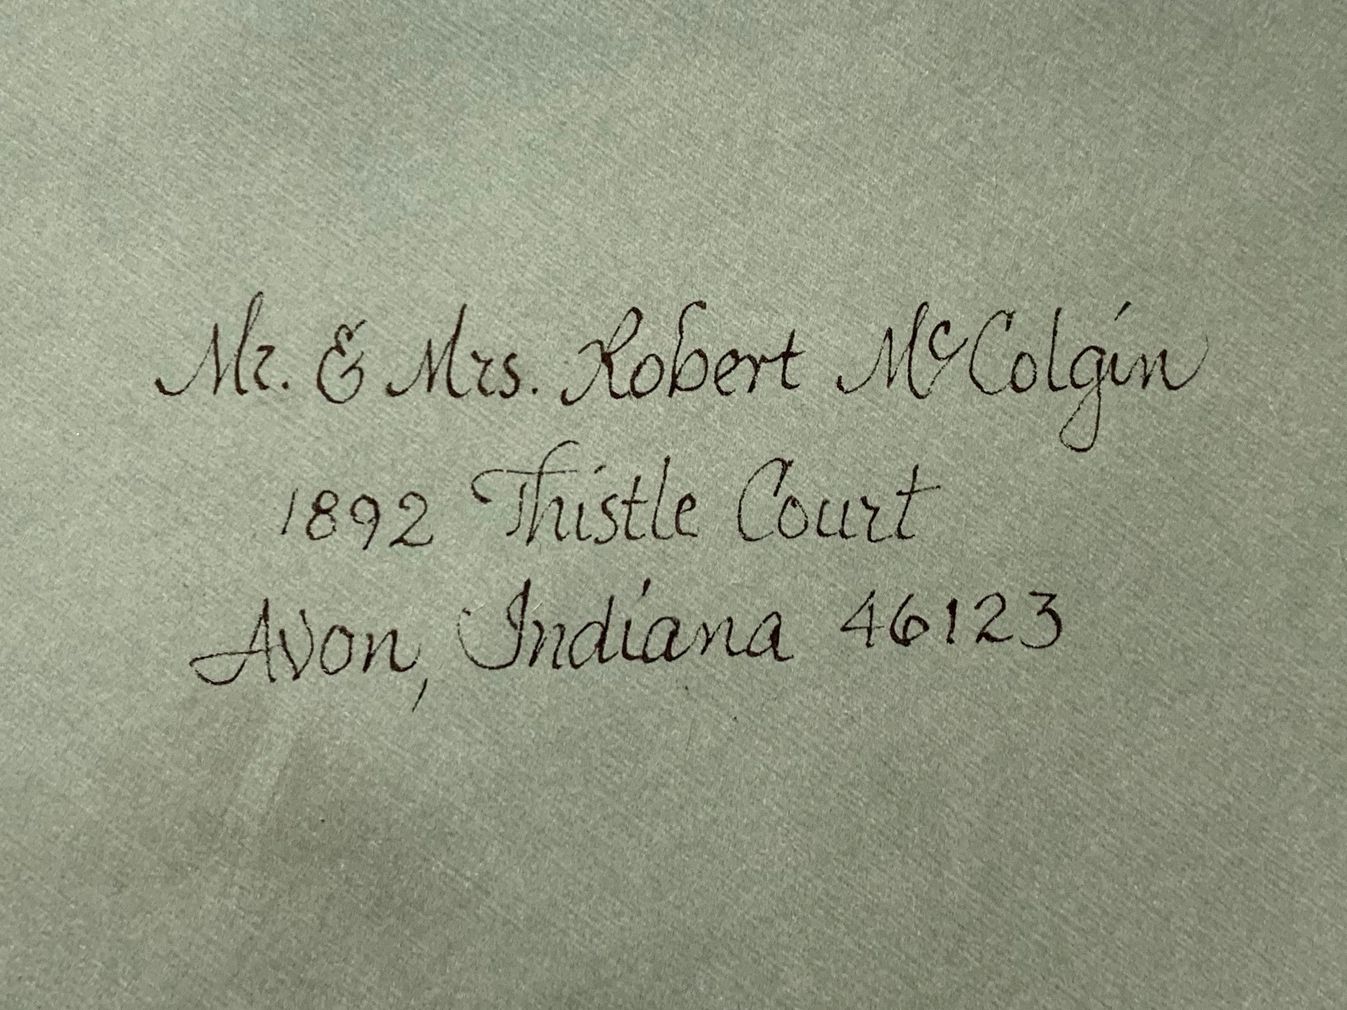 Mr. & Mrs. Robert McColgin
1892 Thistle Court
Avon, Indiana 46123